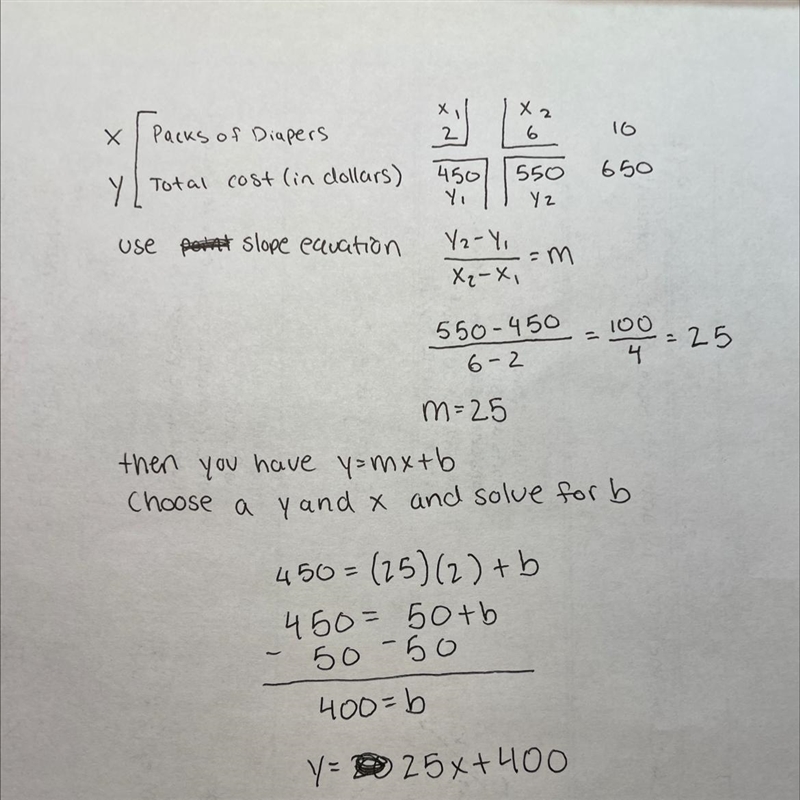 x₁ x₂
x Packs of Diapers 2 6 10
y Total cost (in dollars) 450 550 650
y₁ y₂
use point slope equation y₂-y₁ / x₂-x₁ = m
550-450 / 6-2 = 100/4 = 25
m=25
then you have y=mx+b
Choose a y and x and solve for b
450=(25)(2)+b
450= 50+b
- 50 -50
400=b
y= 25x+400